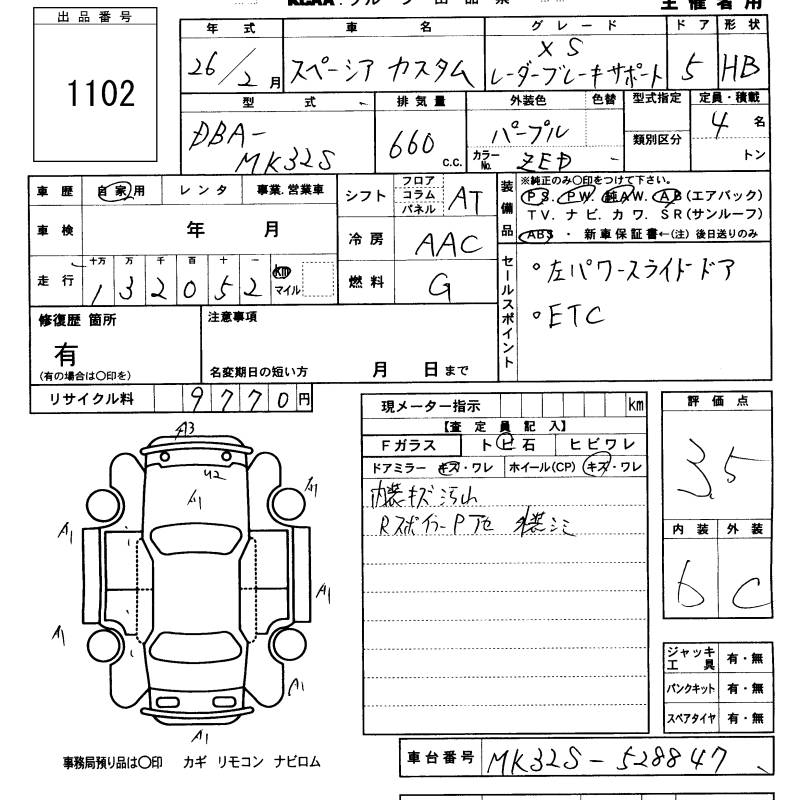 出品番号
1102
主催者用
年式 車名 グレード ドア 形状
26/2月 スペーシア カスタム XS レーダーブレーキサポート 5 HB
型式 排気量 外装色 色替 型式指定 定員・積載
DBA-MK32S 660 C.C. パープル カラーNo. ZED 類別区分 4名 トン
車歴 自家用 レンタ 事業.営業車
シフト フロア コラム パネル AT
装備品 ※純正のみ〇印をつけて下さい。
PS. PW. 純AW. AB(エアバック)
TV. ナビ. カワ. SR(サンルーフ)
ABS・新車保証書←(注)後日送りのみ
車検 年 月
冷房 AAC
走行 十万 万 千 百 十 一 km マイル
132052
燃料 G
セールスポイント
・左パワースライドドア
・ETC
修復歴 箇所
有
(有の場合は〇印を)
注意事項
名変期日の短い方 月 日まで
リサイクル料 9770円
現メーター指示 km
【査定員記入】
Fガラス トビ石 ヒビワレ
ドアミラー キズ・ワレ ホイール(CP) キズ・ワレ
内装キズ汚レ
Rスポイラー P アセ
評価点
3.5
内装 外装
6 C
A3
U2
A1
A1
A1
A1
A1
A1
A1
A1
ジャッキ工具 有・無
パンクキット 有・無
スペアタイヤ 有・無
事務局預り品は〇印 カギ リモコン ナビロム
車台番号 MK32S-528847